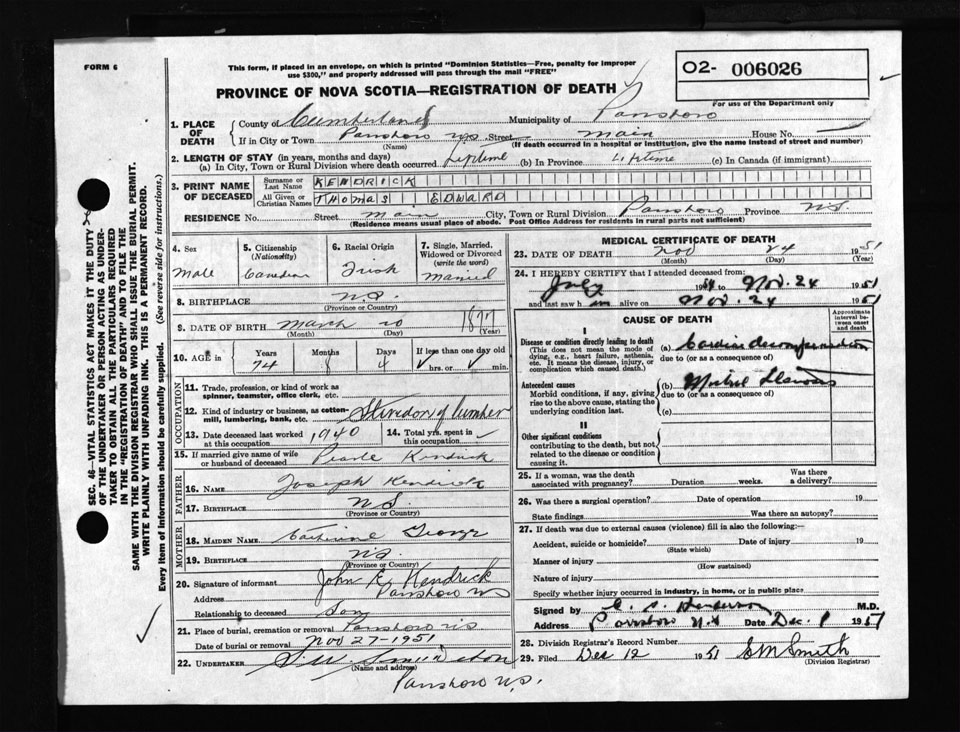 FORM 6
This form, if placed in an envelope, on which is printed "Dominion Statistics—Free, penalty for improper
use $300," and properly addressed will pass through the mail "FREE"
02- 006026
For use of the Department only
PROVINCE OF NOVA SCOTIA—REGISTRATION OF DEATH
1. PLACE OF DEATH
County of Cumberland Municipality of Parrsboro
If in City or Town Parrsboro N.S. Street Main House No.
(Name) (If death occurred in a hospital or institution, give the name instead of street and number)
2. LENGTH OF STAY (in years, months and days)
(a) In City, Town or Rural Division where death occurred Liftime (b) In Province Liftime (c) In Canada (if immigrant)
3. PRINT NAME OF DECEASED
Surname or Last Name KENDRICK
All Given or Christian Names THOMAS EDWARD
RESIDENCE No. Street Main City, Town or Rural Division Parrsboro Province N.S.
(Residence means usual place of abode. Post Office Address for residents in rural parts not sufficient)
4. Sex
Male
5. Citizenship
(Nationality)
Canadian
6. Racial Origin
Irish
7. Single, Married, Widowed or Divorced
(write the word)
Married
8. BIRTHPLACE N.S.
(Province or Country)
9. DATE OF BIRTH March 20 1877
(Month) (Day) (Year)
10. AGE in Years Months Days If less than one day old
74 8 4 hrs. or min.
OCCUPATION
11. Trade, profession, or kind of work as
spinner, teamster, office clerk, etc.
12. Kind of industry or business, as cotton-
mill, lumbering, bank, etc. of lumber
13. Date deceased last worked
at this occupation 1940
14. Total yrs. spent in
this occupation
15. If married give name of wife
or husband of deceased Pearle Kendrick
FATHER
16. NAME Joseph Kendrick
17. BIRTHPLACE N.S.
(Province or Country)
MOTHER
18. MAIDEN NAME Catherine George
19. BIRTHPLACE N.S.
(Province or Country)
20. Signature of informant John E. Kendrick
Address Parrsboro NS
Relationship to deceased Son
21. Place of burial, cremation or removal Parrsboro N.S
Date of burial or removal Nov 27-1951
22. UNDERTAKER S.W.
(Name and address)
Parrsboro N.S.
MEDICAL CERTIFICATE OF DEATH
23. DATE OF DEATH Nov 24 1951
(Month) (Day) (Year)
24. I HEREBY CERTIFY that I attended deceased from:
July 1951 to Nov. 24 1951
and last saw h im alive on Nov. 24 1951
CAUSE OF DEATH
Approximate interval between onset and death
I
Disease or condition directly leading to death
(This does not mean the mode of
dying, e.g., heart failure, asthenia,
etc. It means the disease, injury, or
complication which caused death.)
(a) Cardiac decompensation
due to (or as a consequence of)
Antecedent causes
Morbid conditions, if any, giving
rise to the above cause, stating the
underlying condition last.
(b) Mitral Stenosis
due to (or as a consequence of)
(c)
II
Other significant conditions
contributing to the death, but not
related to the disease or condition
causing it.
25. If a woman, was the death
associated with pregnancy? Duration weeks. Was there
a delivery?
26. Was there a surgical operation? Date of operation 19
State findings Was there an autopsy?
27. If death was due to external causes (violence) fill in also the following:—
Accident, suicide or homicide? Date of injury 19
(State which)
Manner of injury
(How sustained)
Nature of injury
Specify whether injury occurred in industry, in home, or in public place
Signed by Henderson M.D.
Address Parrsboro N.S Date Dec. 1 1951
28. Division Registrar's Record Number
29. Filed Dec 12 1951 EM Smith
(Division Registrar)
SEC. 46—VITAL STATISTICS ACT MAKES IT THE DUTY
OF THE UNDERTAKER OR PERSON ACTING AS UNDER-
TAKER TO OBTAIN ALL THE PARTICULARS REQUIRED
IN THE "REGISTRATION OF DEATH" AND TO FILE THE
SAME WITH THE DIVISION REGISTRAR WHO SHALL ISSUE THE BURIAL PERMIT.
WRITE PLAINLY WITH UNFADING INK. THIS IS A PERMANENT RECORD.
Every item of information should be carefully supplied. (See reverse side for instructions.)